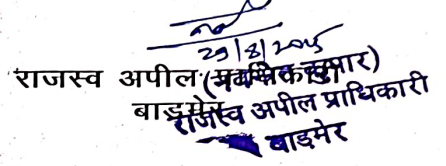 29/8/2025
राजस्व अपील प्राधिकारी
बाड़मेर
राजस्व अपील प्राधिकारी
बाडमेर